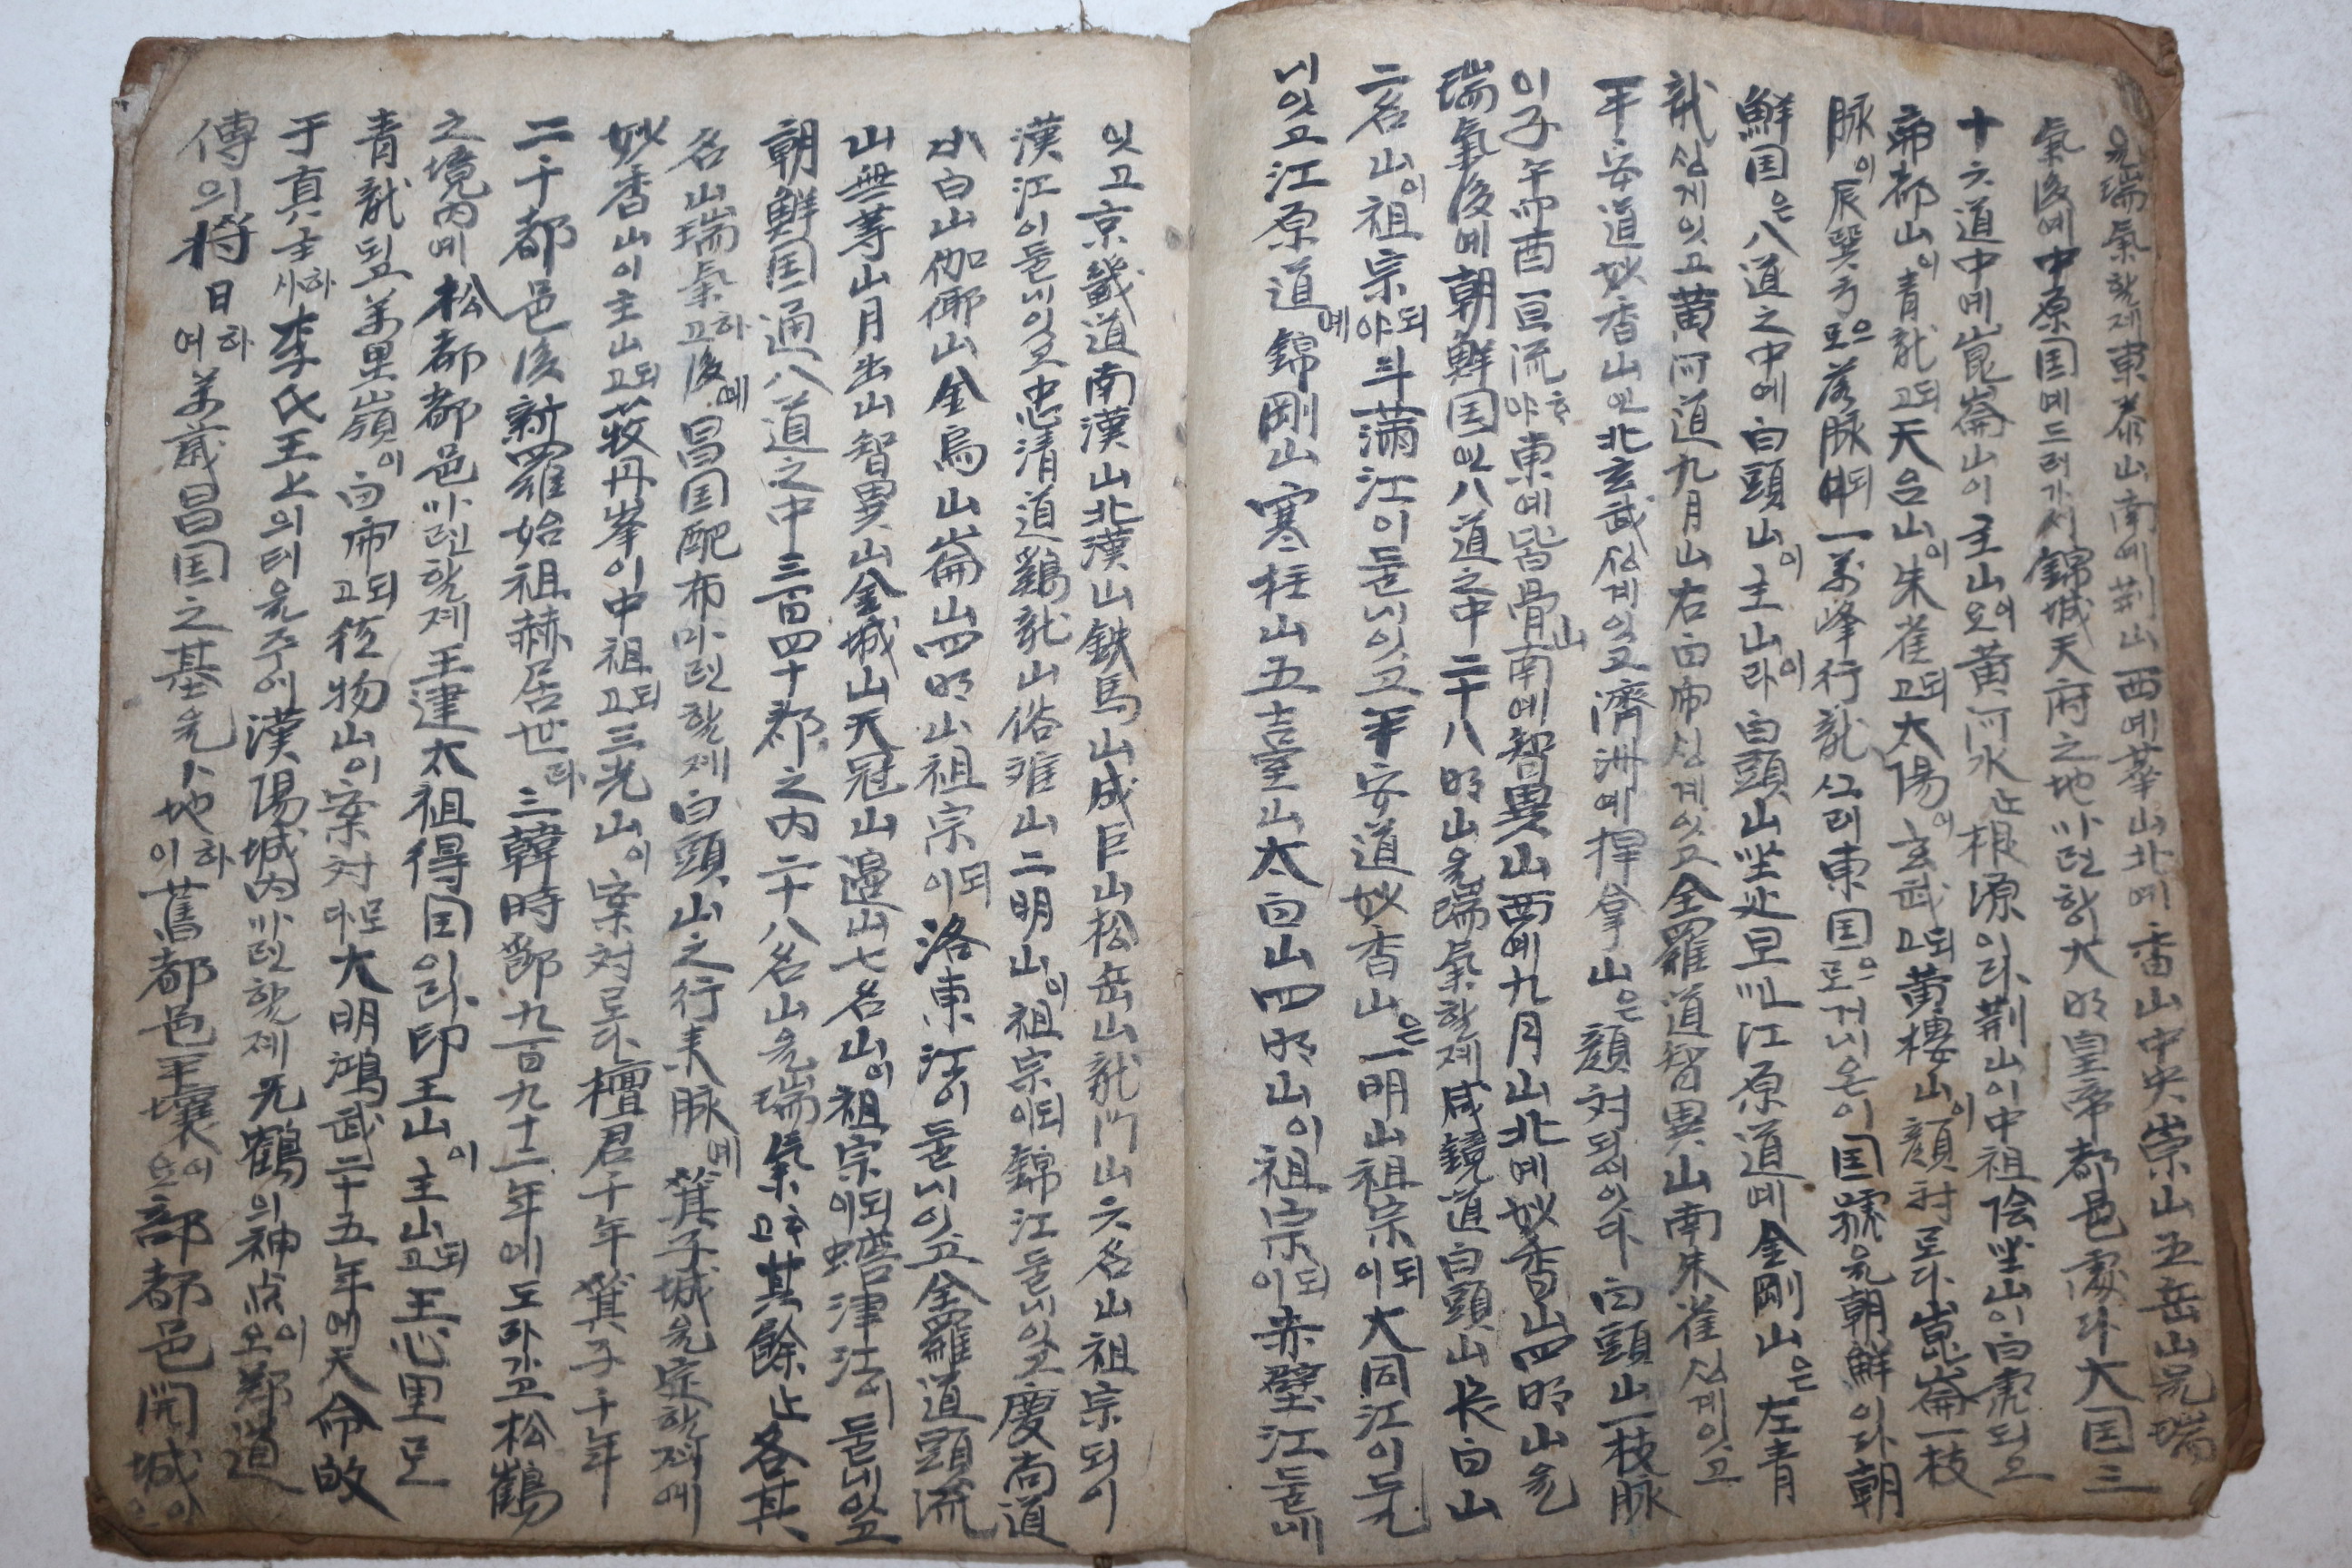 을瑞氣할제東泰山南에荊山西예華山北예香山中央崇山五岳山을瑞
氣後예中原国예드러가시錦城天府之地까련할大明皇帝都邑處라大国三
十六道中에崑崙山이主山이요黃河水止根源이라荊山이中祖陰坐山이白虎되요
帝都山이青龍되고天台山이朱雀되고太陽이玄武되고黃樓山이顔対로다崑崙一枝
脉이辰巽方으로落脉되一萬峰行龍시려東国으로거니온이国號을朝鮮이라朝
鮮国은八道之中에白頭山이主山이라白頭山坐处江原道예金剛山은左青
龍싱게잇고黃河道九月山右白帍싱계잇고全羅道智異山南朱雀싱계잇고
平安道妙香山北玄武싱계잇고濟洲예捍拿山은顔対되잇다白頭山一枝脉
이子午卯酉一亘流하야東예皆骨山南예智異山西예九月山北예妙香山四明山을
瑞氣後예朝鮮国八道之中二十八明山을瑞氣할제咸鏡道白頭山长白山
二名山이祖宗되야斗滿江이둘너잇고平安道妙香山은一明山祖宗이되大同江이둘
너잇고江原道예錦剛山寒柱山五坮山太白山四明山이祖宗이되赤壁江둘네
잇고京畿道南漢山北漢山鉄馬山成巨山松岳山龍门山六名山祖宗되이
漢江이둘너잇고忠清道鷄龍山俗难山二明山이祖宗이되錦江둘너잇고慶尚道
小白山伽倻山金烏山崙山四明山祖宗이되洛東江이둘너잇고全羅道頭流
山無等山月出山智異山金城山天冠山邉山七名山이祖宗이되蟾津江이둘네잇고
朝鮮国通八道之中三百四十郡之内二十八名山을瑞氣하고其餘止各其
名山瑞氣하고後예昌国配布마련할제白頭山之行来脉예箕子城을定할제예
妙香山이主山되고牧丹峯이中祖되고三光山이案対로다檀君千年箕子千年
二千都邑後新羅始祖赫居世라三韓時節九百九十二年에도라가고松鶴
之境内예松都都邑까련할제王建太祖得国이라印王山이主山되고王心里로
青龍되고萬里嶺이白帍되고物山이案対다로大明鴻武二十五年에天命啟
于真主하사李氏王上의터을주에漢陽城内까련할제无鶴의神点이오鄭道
傳의将日하여萬歲昌国之基을卜地하이舊都邑平壤이요部都邑開城이